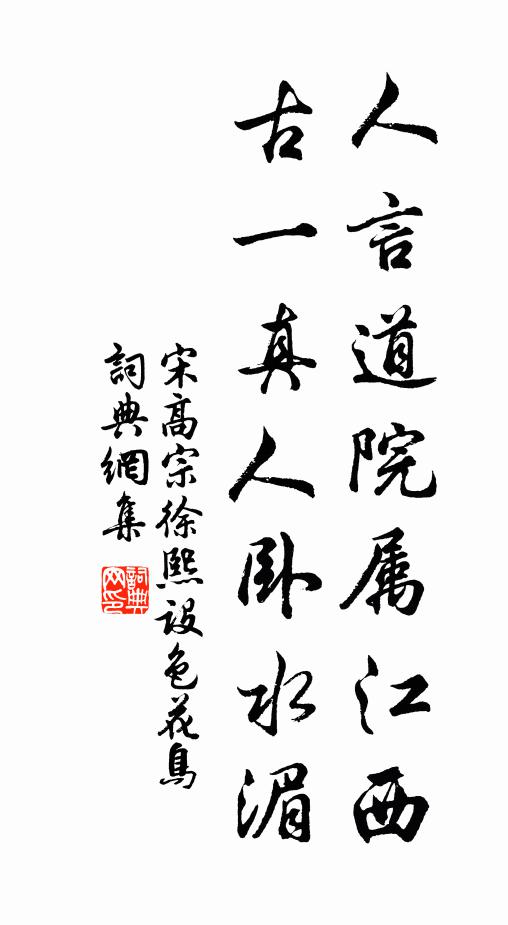 人言道院属江西
古一真人卧水湄
宋高宗徐熙设色花鳥
詞典網集
詞典网印